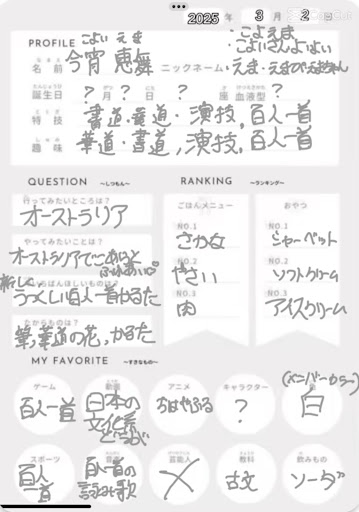 2025 年 3 月 2 日
PROFILE
こよい えま
名前 今宵 恵舞 ニックネーム
・こよえま
・こよいさんよいよい
・えま・えまぴえまちゃん
誕生日 ? 月 ? 日 ? 座 血液型 ?
とくぎ
特技 書道・華道・演技, 百人一首
しゅみ
趣味 華道・書道, 演技, 百人一首
QUESTION ～しつもん～
行ってみたいところは?
オーストラリア
やってみたいことは?
オーストラリアでコアラと
ふれあい♡
いちばんほしいものは?
新しく
うつくしい百人一首かるた
たからものは?
筆, 華道の花, かるた
RANKING ～ランキング～
ごはんメニュー
NO.1
さかな
NO.2
やさい
NO.3
肉
おやつ
NO.1
シャーベット
NO.2
ソフトクリーム
NO.3
アイスクリーム
MY FAVORITE ～すきなもの～
ゲーム
百人一首
動画
日本の
文化系
どうが
アニメ
ちはやふる
キャラクター
?
(メンバーカラー)
色
白
スポーツ
百人
一首
音楽
百人一首の
読み歌
芸能人
教科
古文
飲みもの
ソーダ